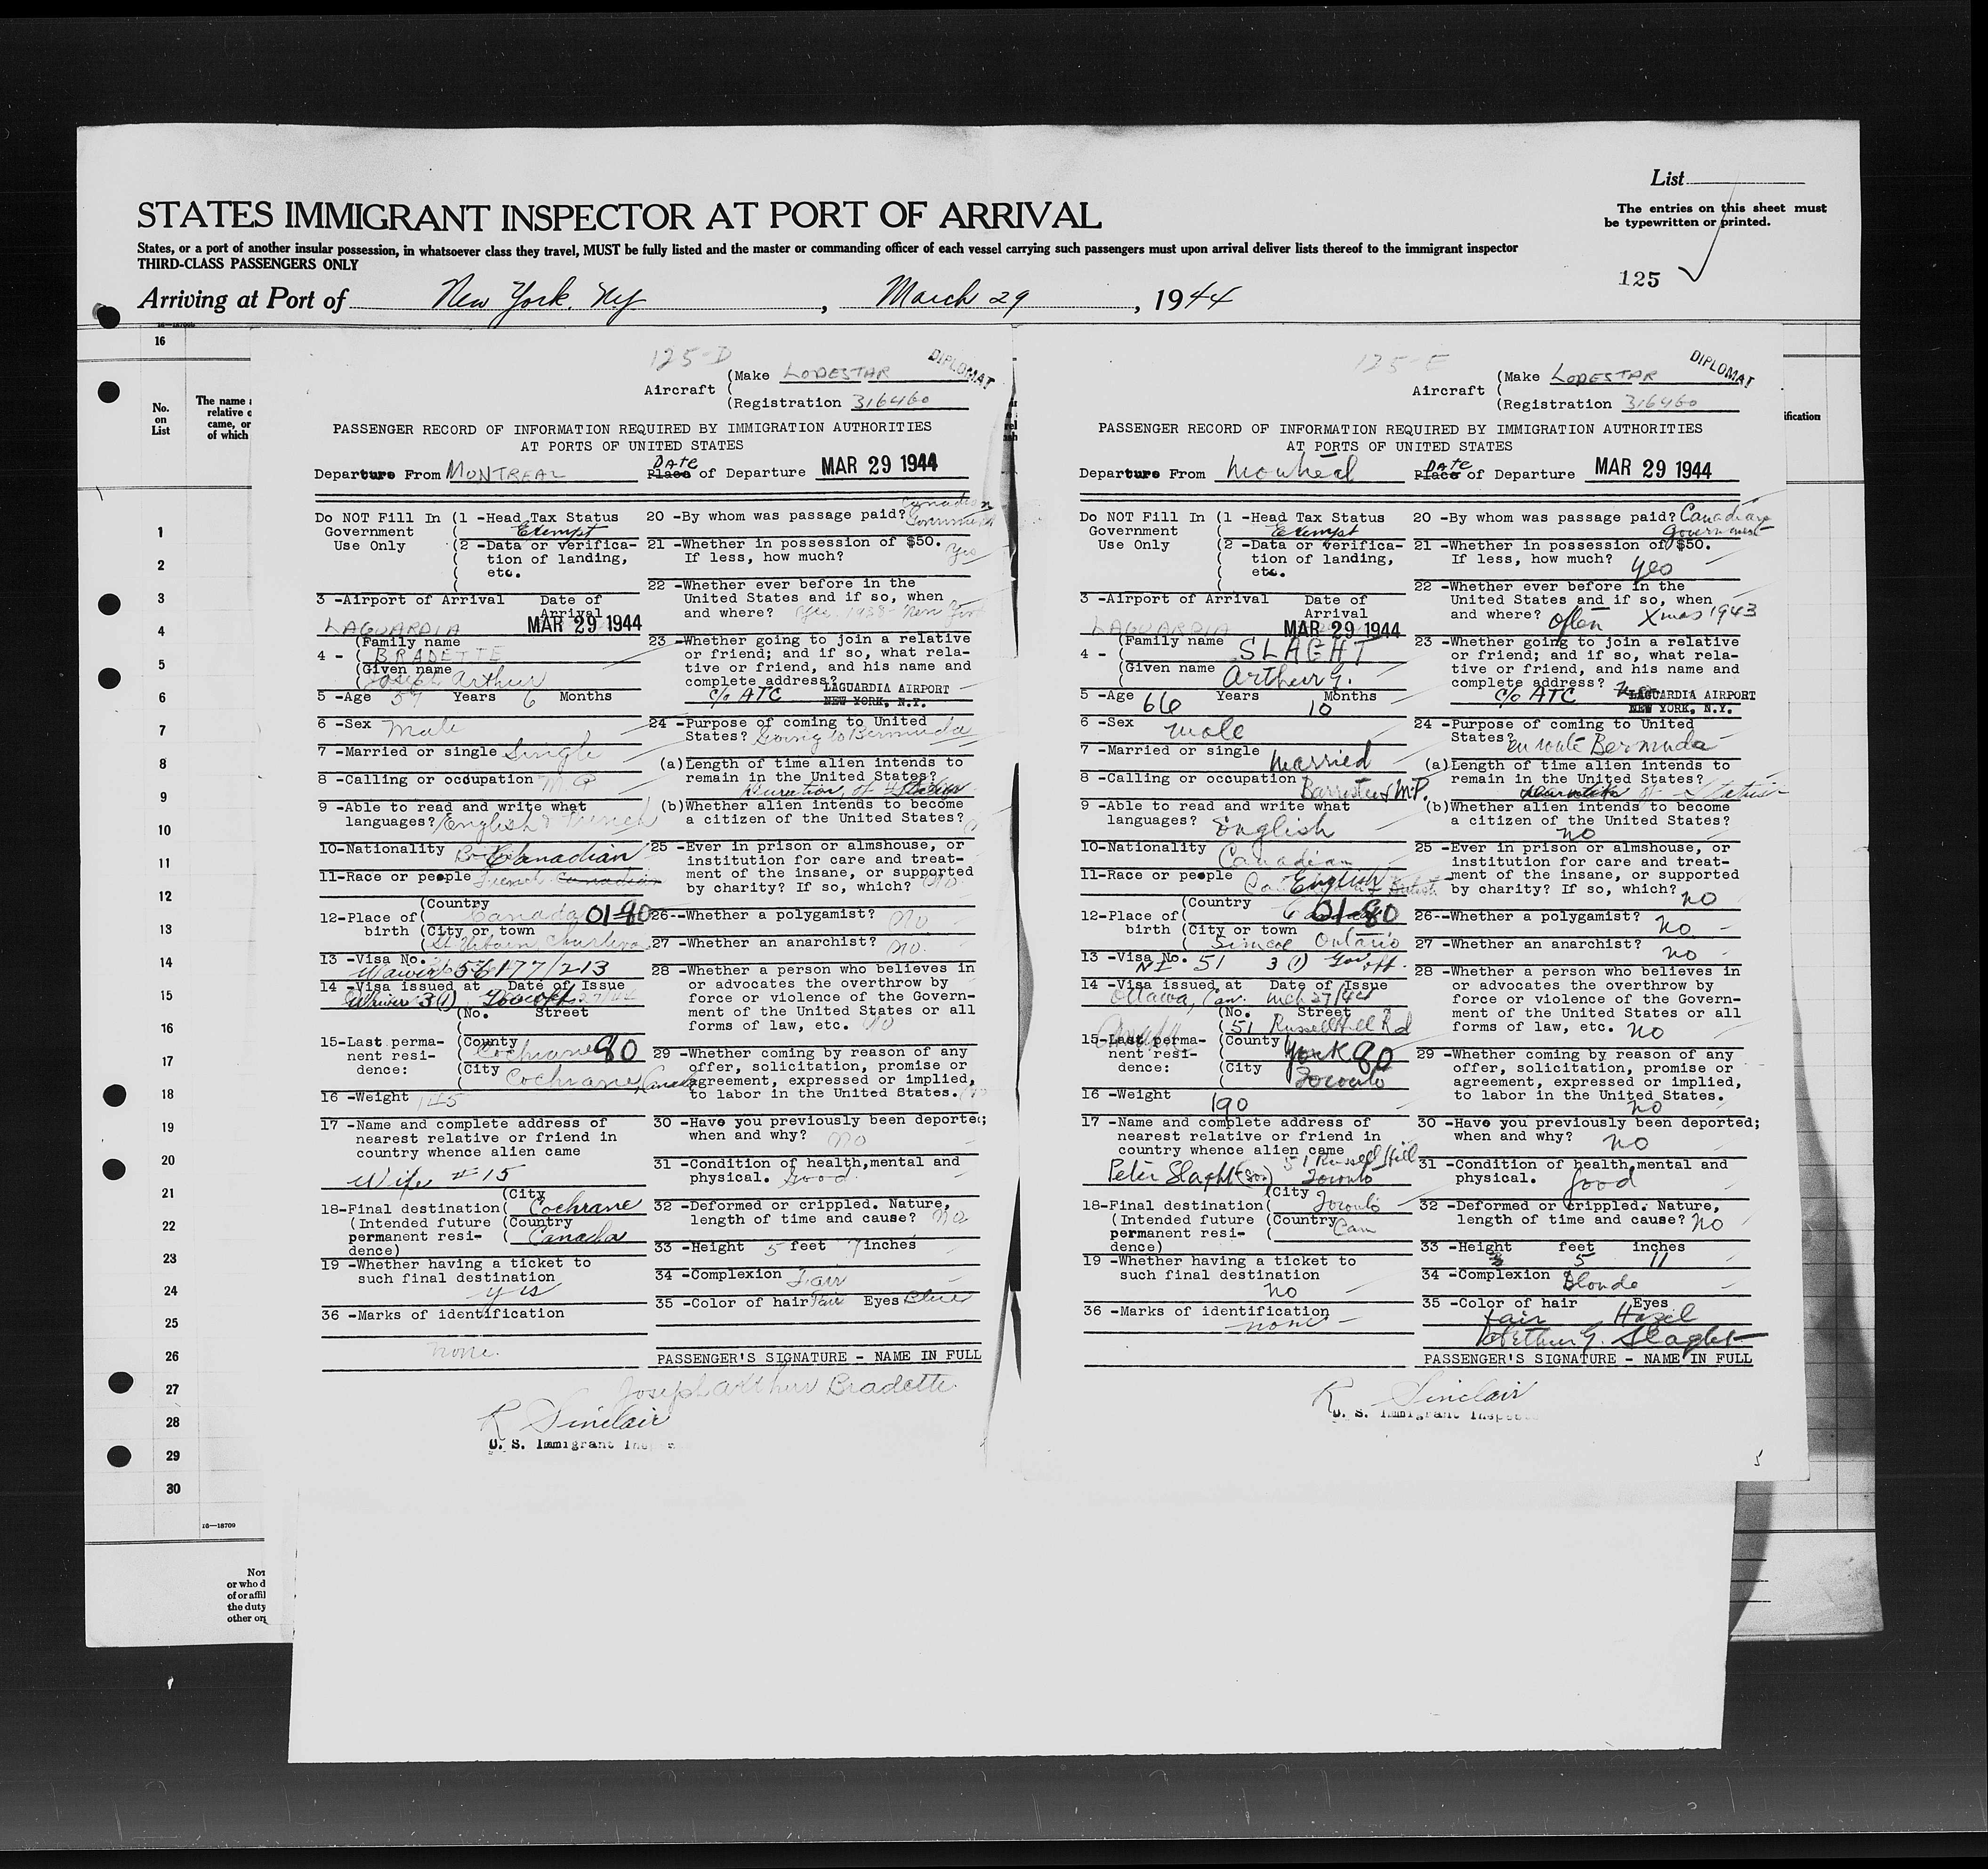 List
STATES IMMIGRANT INSPECTOR AT PORT OF ARRIVAL
The entries on this sheet must
be typewritten or printed.
States, or a port of another insular possession, in whatsoever class they travel, MUST be fully listed and the master or commanding officer of each vessel carrying such passengers must upon arrival deliver lists thereof to the immigrant inspector
THIRD-CLASS PASSENGERS ONLY
125
Arriving at Port of New York, NY, March 29, 1944
16
No.
on
List
The name a
relative o
came, or
of which
ification
1
2
3
4
5
6
7
8
9
10
11
12
13
14
15
16
17
18
19
20
21
22
23
24
25
26
27
28
29
30
16—18700
Not
or who d
of or affil
the duty
other or
125-D
DIPLOMAT
Aircraft (Make LODESTAR
(Registration 316460
PASSENGER RECORD OF INFORMATION REQUIRED BY IMMIGRATION AUTHORITIES
AT PORTS OF UNITED STATES
Departure From MONTREAL Place DATE of Departure MAR 29 1944
Do NOT Fill In (1 -Head Tax Status
Government Exempt
Use Only (2 -Data or verifica-
tion of landing,
etc.
3 -Airport of Arrival Date of
Arrival
LAGUARDIA MAR 29 1944
4 - (Family name
BRADETTE
(Given name
Joseph Arthur
5 -Age 57 Years 6 Months
6 -Sex Male
7 -Married or single Single
8 -Calling or occupation M.P.
9 -Able to read and write what
languages? English & French
10-Nationality Canadian
11-Race or people French Canadian
12-Place of (Country Canada 01-90
birth (City or town
St Urbain
13 -Visa No.
Waiver 56177/213
14 -Visa issued at Date of Issue
Waiver 3(1) Gov off
(No. Street
15-Last perma- (County Cochrane 90
nent resi-
dence: (City Cochrane, Canada
16 -Weight 145
17 -Name and complete address of
nearest relative or friend in
country whence alien came
Wife #15
18-Final destination (City Cochrane
(Intended future (Country
permanent resi- Canada
dence)
19 -Whether having a ticket to
such final destination
yes
36 -Marks of identification
none.
20 -By whom was passage paid? Canadian
Government
21 -Whether in possession of $50.
If less, how much? Yes
22 -Whether ever before in the
United States and if so, when
and where? Yes. 1938 New York
23 -Whether going to join a relative
or friend; and if so, what rela-
tive or friend, and his name and
complete address?
c/o ATC LAGUARDIA AIRPORT
NEW YORK, N.Y.
24 -Purpose of coming to United
States? Going to Bermuda
(a)Length of time alien intends to
remain in the United States?
Duration of Status
(b)Whether alien intends to become
a citizen of the United States?
25 -Ever in prison or almshouse, or
institution for care and treat-
ment of the insane, or supported
by charity? If so, which? No.
26--Whether a polygamist? No
27 -Whether an anarchist? No.
28 -Whether a person who believes in
or advocates the overthrow by
force or violence of the Govern-
ment of the United States or all
forms of law, etc. No
29 -Whether coming by reason of any
offer, solicitation, promise or
agreement, expressed or implied,
to labor in the United States. No
30 -Have you previously been deported;
when and why? No
31 -Condition of health,mental and
physical. Good.
32 -Deformed or crippled. Nature,
length of time and cause? No
33 -Height 5 feet 7 inches
34 -Complexion Fair
35 -Color of hair Fair Eyes Blue
PASSENGER'S SIGNATURE - NAME IN FULL
Joseph Arthur Bradette
R Sinclair
U. S. Immigrant Inspe
125-E
DIPLOMAT
Aircraft (Make LODESTAR
(Registration 316460
PASSENGER RECORD OF INFORMATION REQUIRED BY IMMIGRATION AUTHORITIES
AT PORTS OF UNITED STATES
Departure From Montreal Place DATE of Departure MAR 29 1944
Do NOT Fill In (1 -Head Tax Status
Government Exempt
Use Only (2 -Data or verifica-
tion of landing,
etc.
3 -Airport of Arrival Date of
Arrival
LAGUARDIA MAR 29 1944
4 - (Family name SLAGHT
(Given name Arthur G.
5 -Age 66 Years 10 Months
6 -Sex Male
7 -Married or single Married
8 -Calling or occupation Barrister & M.P.
9 -Able to read and write what
languages? English
10-Nationality Canadian
11-Race or people English
12-Place of (Country 01-90
birth (City or town
Simcoe Ontario
13 -Visa No. NI 51 3(1) Gov off.
14 -Visa issued at Date of Issue
Ottawa, Can. Mch 27/44
(No. Street
51 Russell Hill Rd
15-Last perma- (County York 90
nent resi-
dence: (City Toronto
16 -Weight 190
17 -Name and complete address of
nearest relative or friend in
country whence alien came 51 Russell Hill
Peter Slaght (son) Toronto
18-Final destination (City Toronto
(Intended future (Country Can
permanent resi-
dence)
19 -Whether having a ticket to
such final destination
No
36 -Marks of identification
none
20 -By whom was passage paid? Canadian
Government
21 -Whether in possession of $50.
If less, how much? yes
22 -Whether ever before in the
United States and if so, when
and where? Often Xmas 1943
23 -Whether going to join a relative
or friend; and if so, what rela-
tive or friend, and his name and
complete address?
c/o ATC LAGUARDIA AIRPORT
NEW YORK, N.Y.
24 -Purpose of coming to United
States? en route Bermuda
(a)Length of time alien intends to
remain in the United States?
duration of Status
(b)Whether alien intends to become
a citizen of the United States?
no
25 -Ever in prison or almshouse, or
institution for care and treat-
ment of the insane, or supported
by charity? If so, which? no
26--Whether a polygamist? no
27 -Whether an anarchist? no
28 -Whether a person who believes in
or advocates the overthrow by
force or violence of the Govern-
ment of the United States or all
forms of law, etc. no
29 -Whether coming by reason of any
offer, solicitation, promise or
agreement, expressed or implied,
to labor in the United States.
no
30 -Have you previously been deported;
when and why? no
31 -Condition of health,mental and
physical. good
32 -Deformed or crippled. Nature,
length of time and cause? no
33 -Height feet inches
5 11
34 -Complexion Blonde
35 -Color of hair Eyes
fair Hazel
Arthur G. Slaght
PASSENGER'S SIGNATURE - NAME IN FULL
R Sinclair
U. S. Immigrant Inspec
5